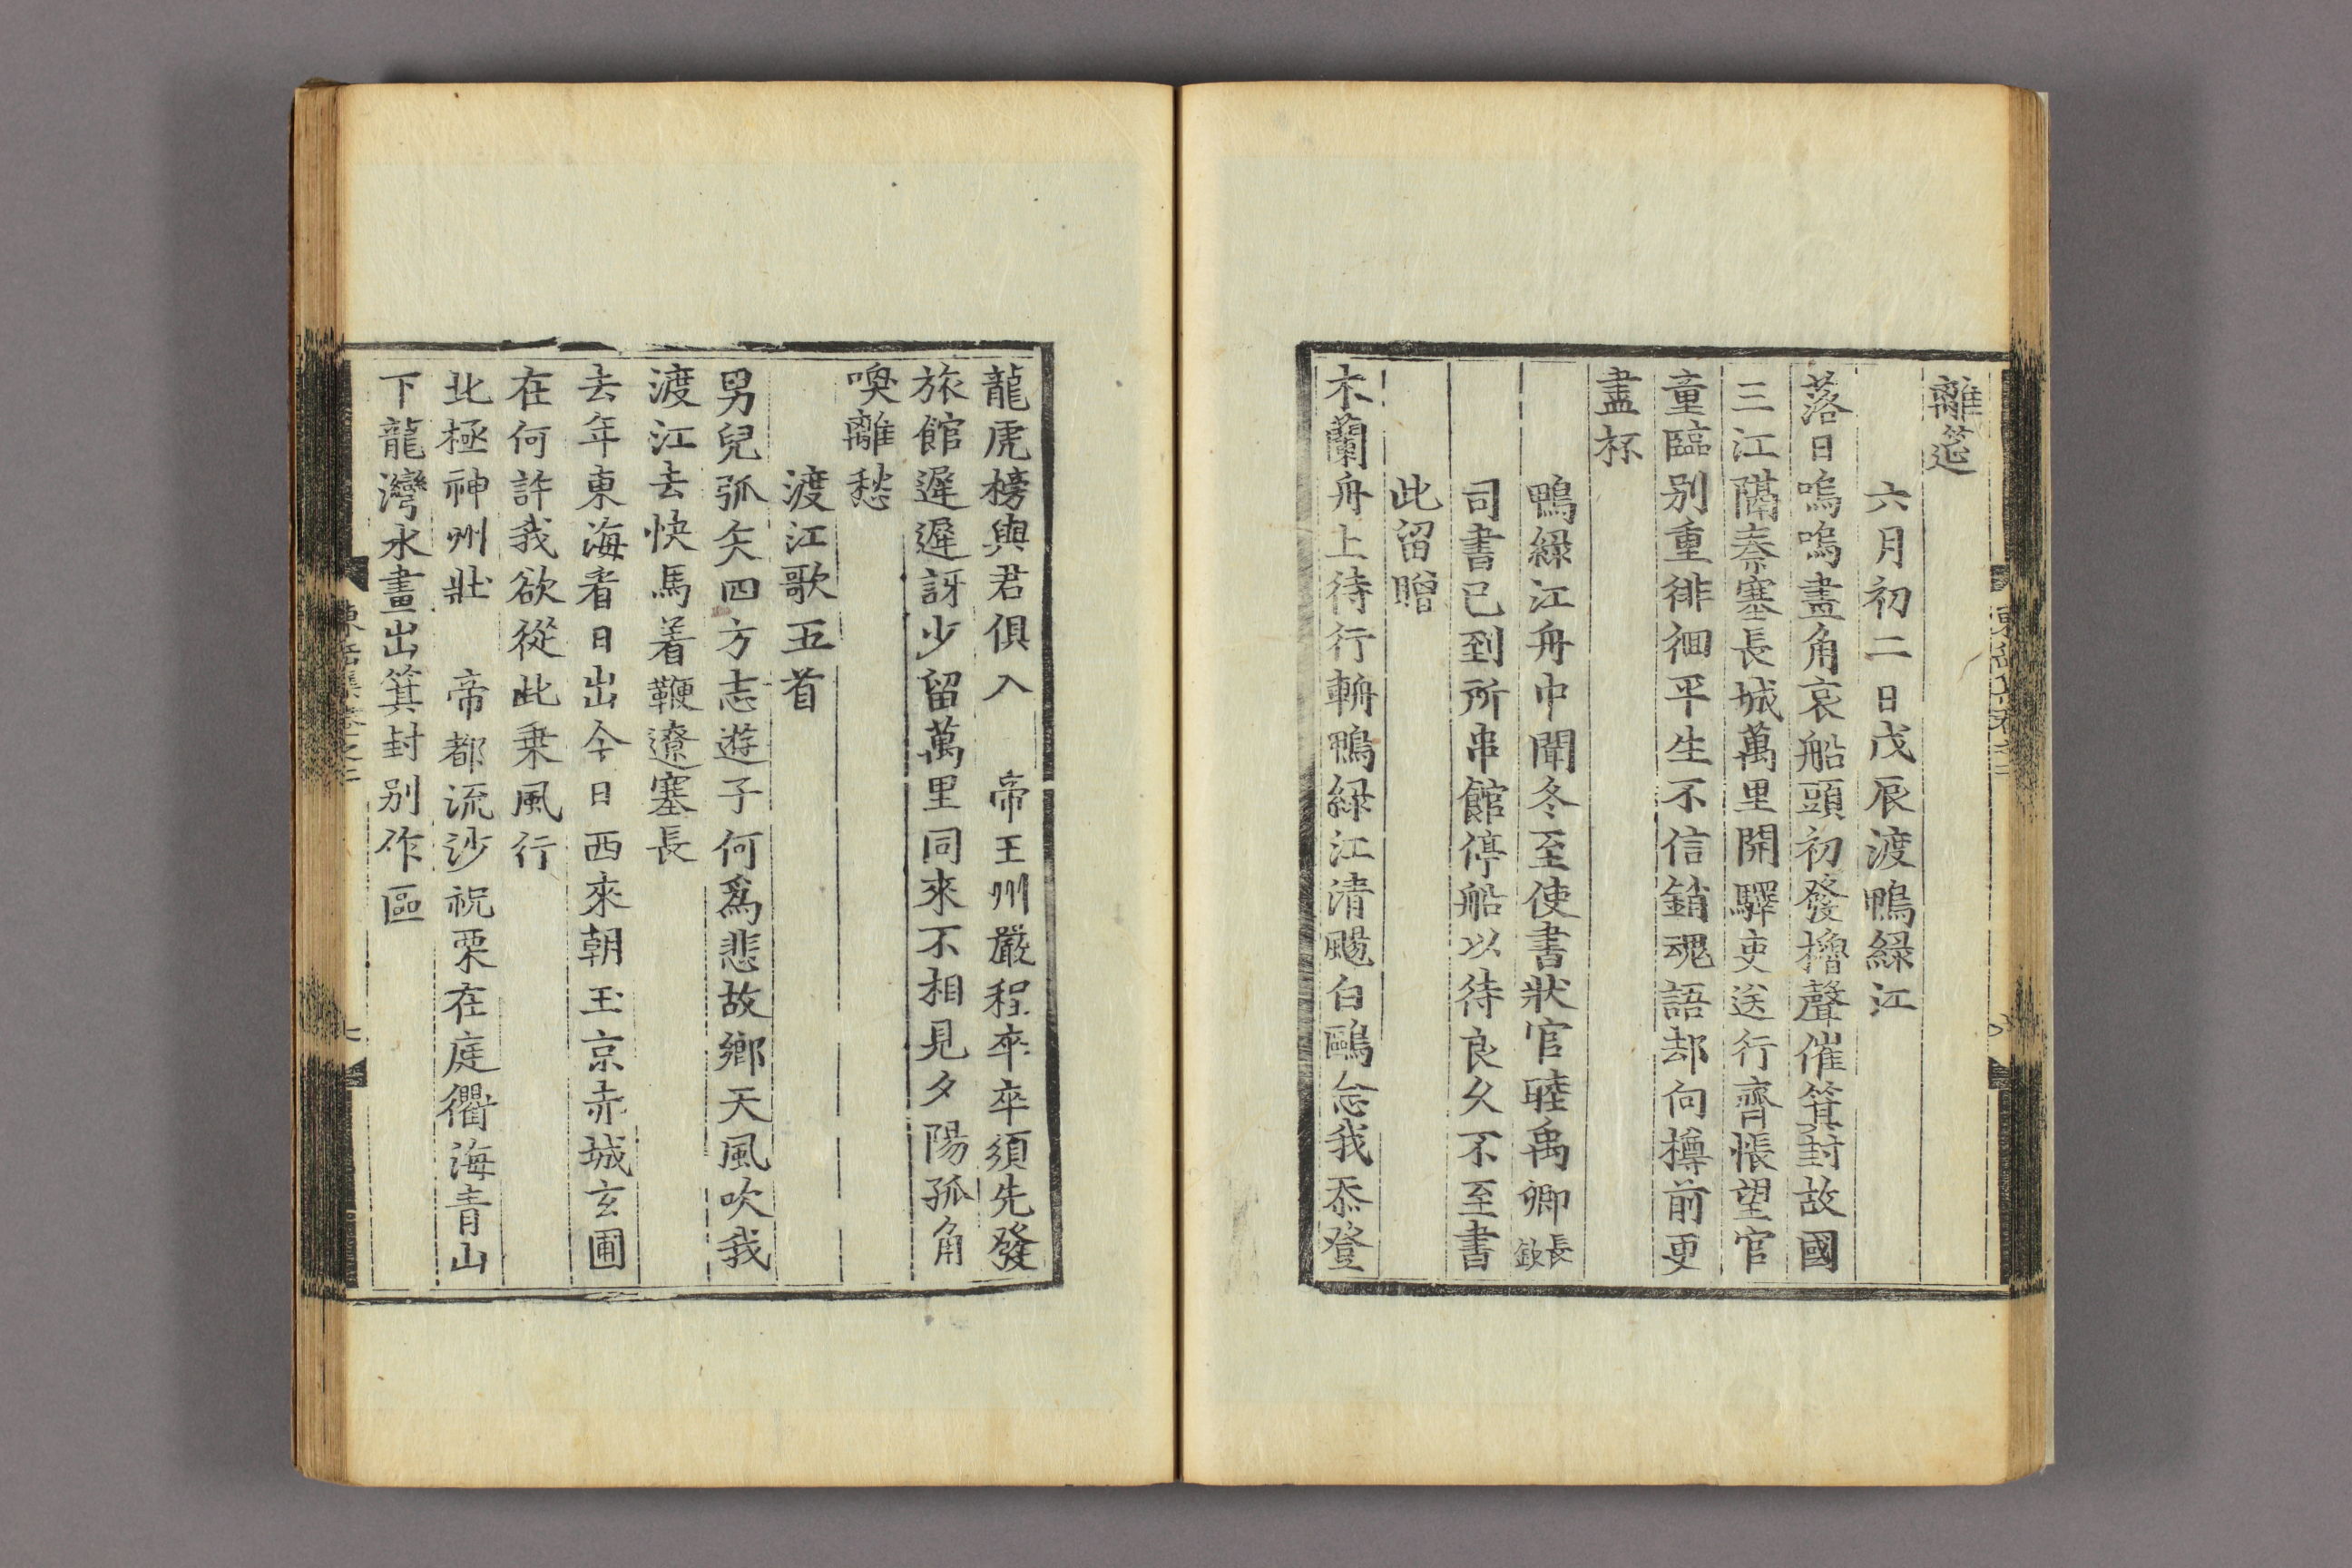 離筵
六月初二日戊辰渡鴨綠江
落日嗚嗚畫角哀船頭初發櫓聲催箕封故國
三江隔秦塞長城萬里開驛吏送行齊悵望官
童臨别重徘徊平生不信銷魂語却向樽前更
盡杯
鴨綠江舟中聞冬至使書狀官睦禹卿長欽
司書已到所串館停船以待良久不至書
此留贈
木蘭舟上待行輈鴨綠江清颺白鷗念我忝登
龍虎榜與君俱入 帝王州嚴程卒卒須先發
旅館遲遲訝少留萬里同來不相見夕陽孤角
喚離愁
渡江歌五首
男兒弧矢四方志遊子何爲悲故鄉天風吹我
渡江去快馬着鞭遼塞長
去年東海看日出今日西來朝玉京赤城玄圃
在何許我欲從此乗風行
北極神州壯 帝都流沙祝栗在庭衢海青山
下龍灣水畫出箕封别作區